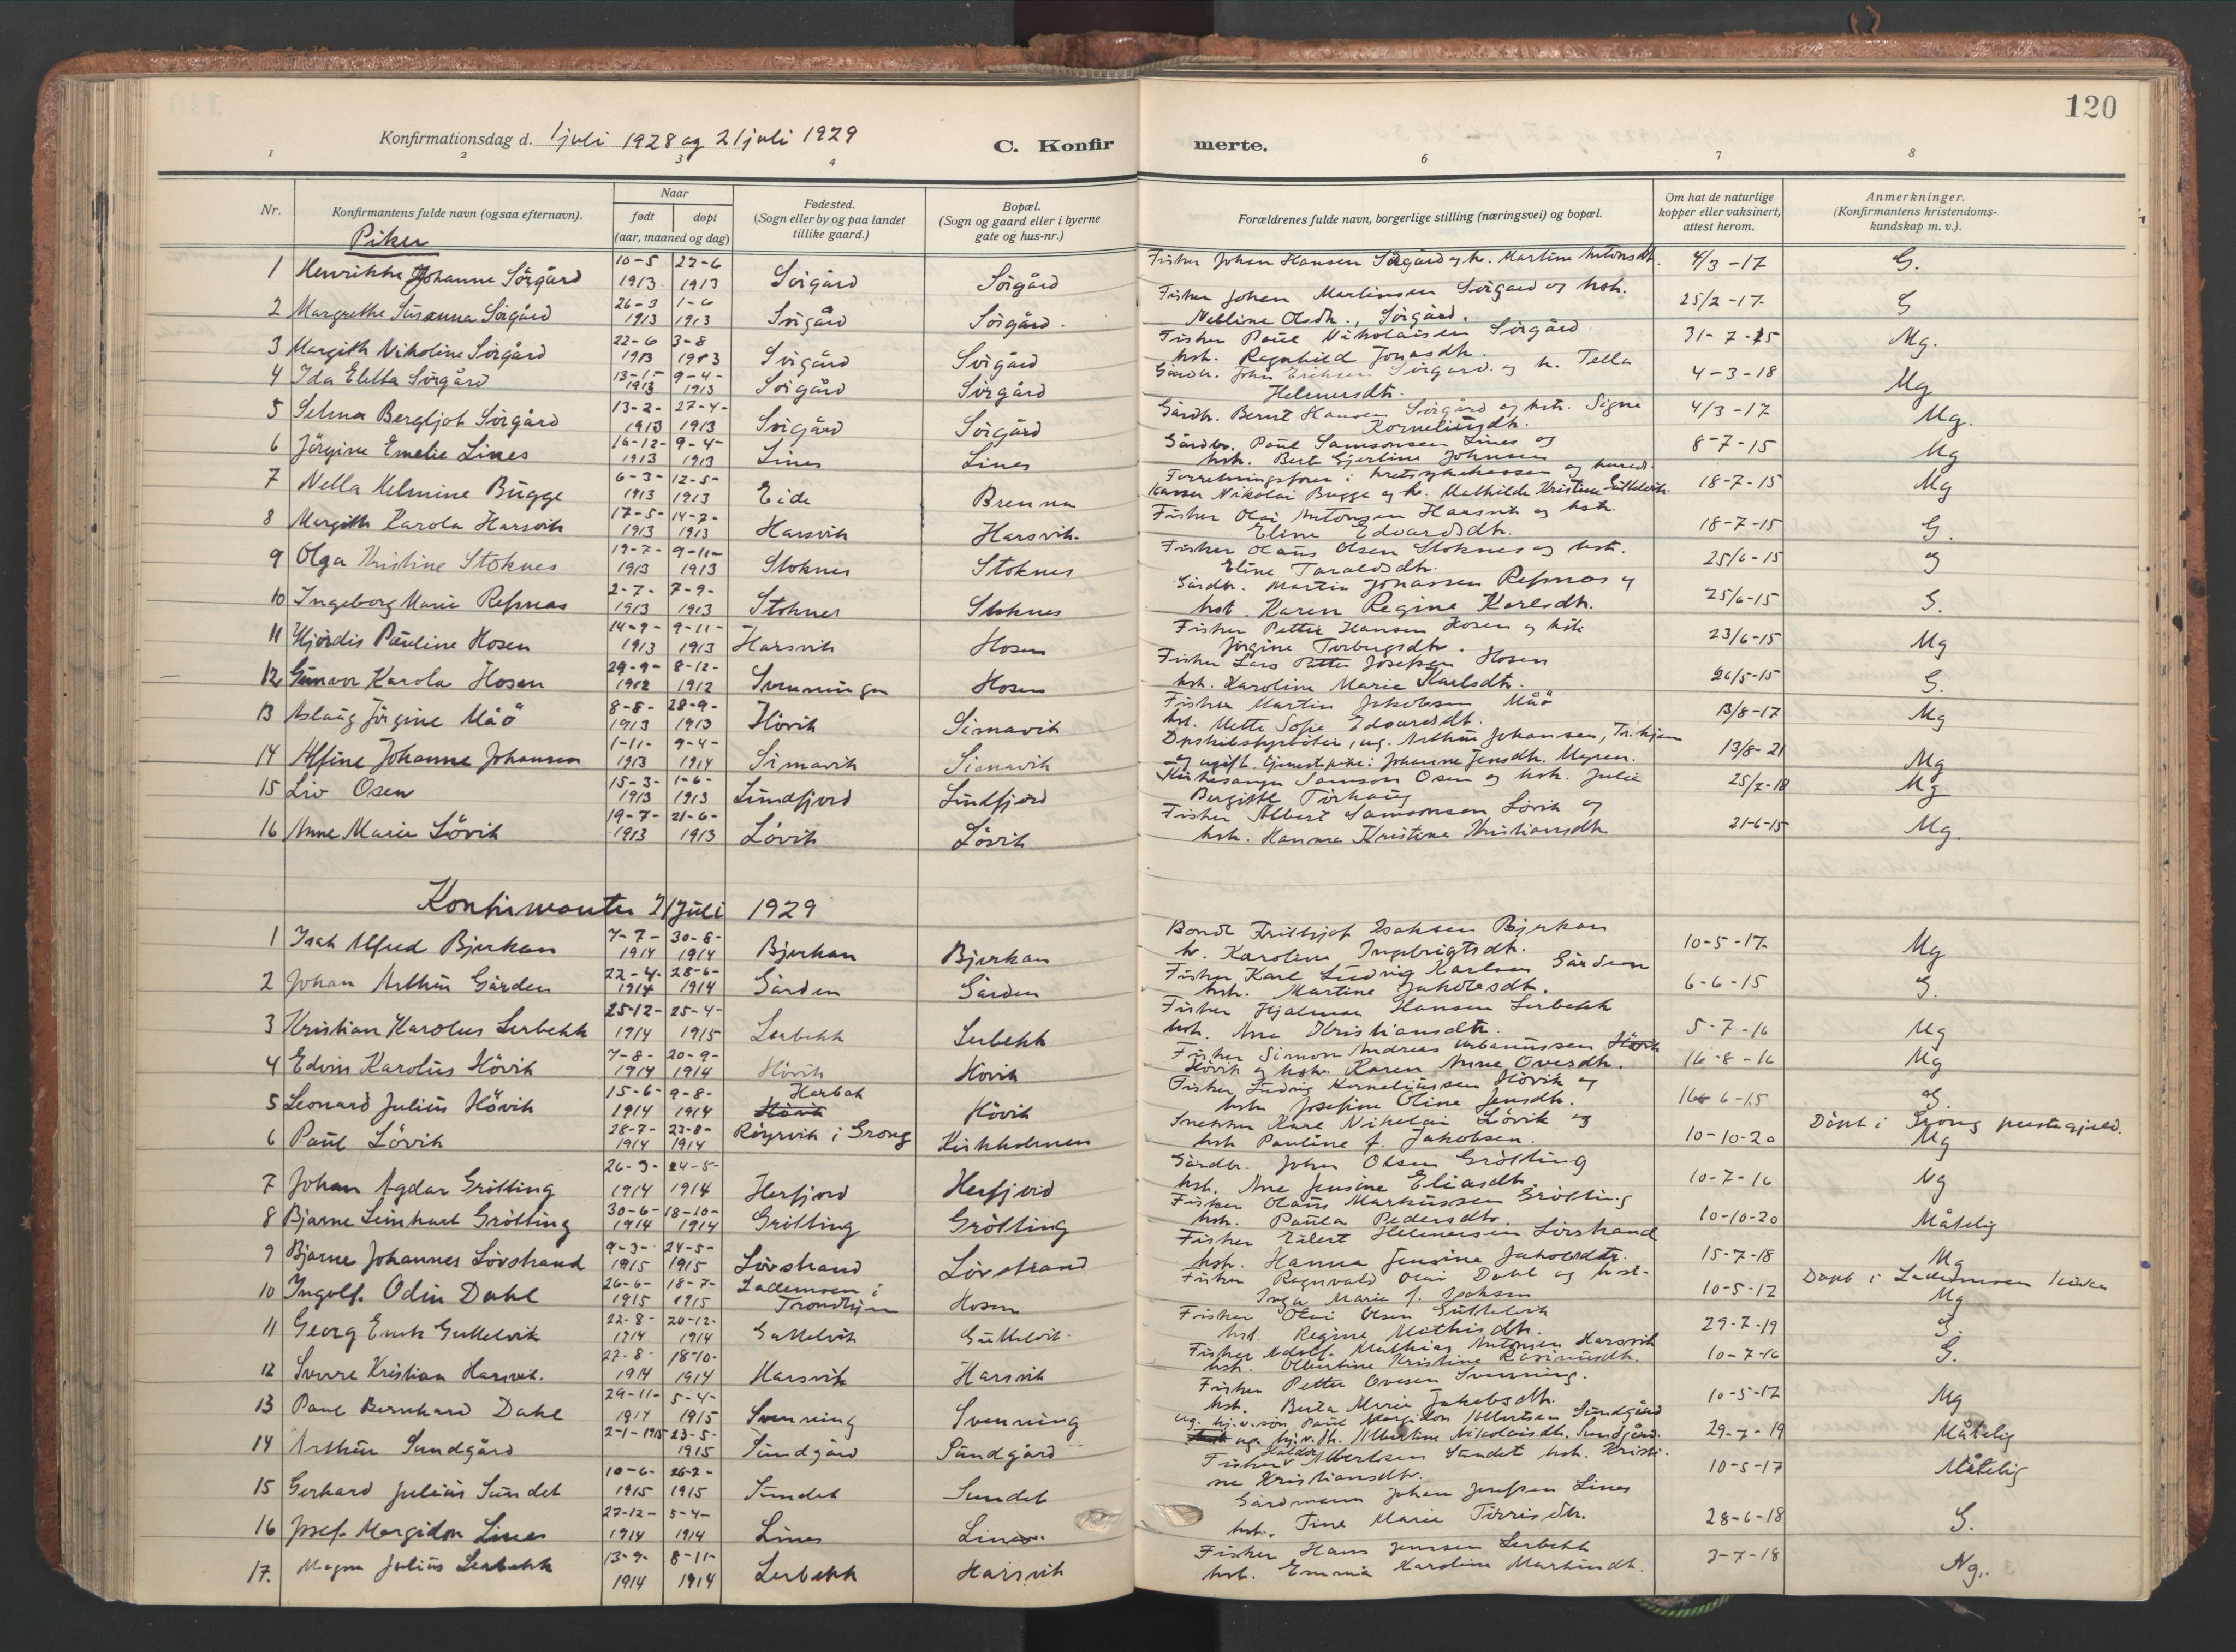 120
Konfirmationsdag d. 1 juli 1928 og 21 juli 1929
C. Konfirmerte.
1 2 3 4 6 7 8
Nr.
Konfirmantens fulde navn (ogsaa efternavn).
Naar
født døpt
(aar, maaned og dag)
Fødested.
(Sogn eller by og paa landet
tillike gaard.)
Bopæl.
(Sogn og gaard eller i byerne
gate og hus-nr.)
Forældrenes fulde navn, borgerlige stilling (næringsvei) og bopæl.
Om hat de naturlige
kopper eller vaksinert,
attest herom.
Anmerkninger.
(Konfirmantens kristendoms-
kundskap m. v.).
Piker
1 Henrikke Johanne Sörgård 10-5 1913 22-6 1913 Sörgård Sörgård Fisker Johan Hansen Sörgård og h. Martine Antonsdt. 4/3-17 G.
2 Margrethe Susanna Sörgård 26-3 1913 1-6 1913 Sörgård Sörgård. Fisker Johan Martinsen Sörgård og hstr.
Nelline Olsdtr., Sörgård. 25/2-17- G
3 Margith Nikoline Sörgård 22-6 1913 3-8 1913 Sörgård Sörgård Fisker Paul Nikolaisen Sörgård
hst. Ragnhild Jonasdtr. 31-7-15 Mg.
4 Ida Elella Sörgård 13-1- 1913 9-4- 1913 Sörgård Sörgård Gårdbr. John Eriksen Sörgård og h. Tella
Helmersdtr. 4-3-18 Mg
5 Selma Bergljot Sörgård 13-2- 1913 27-4- 1913 Sörgård Sörgård Gårdbr. Bernt Hansen Sörgård og hstr. Signe
Korneliusdtr. 4/3-17 Mg.
6 Jörgine Emelie Lines 16-12- 1913 9-4- 1913 Lines Lines Gårdbr. Paul Samsonsen Lines og
hstr. Berit Gjertine Johnsen 8-7-15 Mg
7 Nella Helmine Bugge 6-3- 1913 12-5- 1913 Eide Brenna Forretningsförer i kretssykekassen og herreds-
kasser Nikolai Bugge og h. Mathilde Kristine Gulleloik. 18-7-15 Mg
8 Margith Karola Harsvik 17-5- 1913 14-7- 1913 Harsvik Harsvik- Fisker Olai Antonsen Harsvik og hstr.
Eline Edvardsdtr. 18-7-15 G.
9 Olga Kristine Stoknes 19-7- 1913 9-11- 1913 Stoknes Stoknes Fisker Olaus Olsen Stoknes og hstr.
Eline Taraldsdtr. 25/6-15 g
10 Ingeborg Marie Refsnes 2-7- 1913 7-9- 1913 Stoknes Stoknes Gårdbr. Martin Jonassen Refsnes og
hst. Karen Regine Karlsdtr. 25/6-15 G.
11 Hjördis Pauline Hosen 14-9- 1913 9-11- 1913 Harsvik Hosen Fisker Petter Hansen Hosen og hstr
Jörgine Torbergsdtr. 23/6-15 Mg
12 Gunvor Karola Hosen 29-9- 1912 8-12- 1912 Svenningen Hosen Fisker Lars Petter Josefsen Hosen
hst. Karoline Marie Karlsdtr. 26/5-15 G.
13 Aslaug Jörgine Måö 8-8- 1913 28-9- 1913 Hövik Simavik Fisker Martin Jakobsen Måö
hst. Mette Sofie Edvardsdt. 13/8-17 Mg
14 Alfine Johanne Johansen 1-11- 1913 9-4- 1914 Simavik Simavik Dpskibsfyrböter, ug. Arthur Johansen, Tr.hjem
og ugift tjenestepike: Johanne Jensdtr. Myren. 13/8-21 Mg
15 Liv Osen 15-3- 1913 1-6- 1913 Sundfjord Sundfjord Kirkesanger Samson Osen og hstr. Julie
Bergitte Törhaug 25/2-18 Mg
16 Anne Marie Lövik 19-7- 1913 21-6- 1913 Lövik Lövik Fisker Albert Samsonsen Lövik og
hstr. Hanna Kristine Kristiansdtr. 21-6-15 Mg.
Konfirmanter 21 Juli 1929
1 Isak Alfred Bjerkan 7-7- 1914 30-8- 1914 Bjerkan Bjerkan Bonde Frithjof Isaksen Bjerkan
h. Karoline Ingebrigtsdt. 10-5-17- Mg
2 Johan Arthur Gården 22-4- 1914 28-6- 1914 Gården Gården Fisker Karl Ludvig Karlsen Gården
hstr. Martine Jakobsdtr. 6-6-15 G.
3 Kristian Karolus Lerbekk 25-12- 1914 25-4- 1915 Lerbekk Lerbekk Fisker Hjalmar Hansen Lerbekk
hst. Ane Kristiansdtr. 5-7-16 Mg
4 Edvin Karolus Hövik 7-8- 1914 20-9- 1914 Hövik Hövik Fisker Simon Andreas Urbanussen Hövik
Hövik og hstr. Karen Anne Ovesdtr. 16-8-16 Mg
5 Leonard Julius Hövik 15-6- 1914 9-8- 1914 Harbak Hövik Hövik Fisker Ludvig Korneliussen Hövik og
hstr. Josefine Oline Jensdtr. 16 6-15 G.
6 Paul Lövik 28-7- 1914 23-8- 1914 Röyrvik i Grong Kirkholmen Snekker Karl Nikolai Lövik og
hstr Pauline f. Jakobsen. 10-10-20 Döpt i Grong prestegjeld. Mg
7 Johan Agdar Grötting 26-3- 1914 24-5- 1914 Herfjord Herfjord Gårdbr. John Olsen Grötting
hst. Ane Jensine Eliasdtr. 10-7-16 Ng
8 Bjarne Leinhart Grötting 30-6- 1914 18-10- 1914 Grötting Grötting Fisker Olaus Markussen Grötting
hst. Paula Pedersdtr. 10-10-20 Måtelig
9 Bjarne Johannes Lövstrand 9-3- 1915 24-5- 1915 Lövstrand Lövstrand Fisker Eilert Helmersen Lövstrand
hstr. Hanna Jensine Jakobsdtr. 15-7-18 Mg
10 Ingolf Odin Dahl 26-6- 1915 18-7- 1915 Lademoen i Trondhjem Hosen Fisker Ragnvald Olai Dahl og hst-
Inga Marie f. Isaksen 10-5-17 Döpt i Lademoen kirke Mg
11 Georg Enok Gullelvik 22-8- 1914 20-12- 1914 Gullelvik Gullelvik- Fisker Olai Olsen Gullelvik
hst. Regine Mathisdtr. 29-7-19 G.
12 Sverre Kristian Harsvik. 27-8- 1914 18-10- 1914 Harsvik Harsvik Fisker Adolf Mathias Antonsen Harsvik
hst. Albertine Kristine Rasmusdtr. 10-7-16 G.
13 Paul Bernhard Dahl 29-11- 1914 5-4- 1915 Svenning Svenning Fisker Petter Ovesen Svenning.
hst. Berta Marie Jakobsdtr. 10-5-17 Mg
14 Arthur Sundgård 2-1-1915 23-5- 1915 Sundgård Sundgård ug. hj.v. sön Paul Margidon Albertsen Sundgård
og hjv.dtr. Albertine Nikolaisdtr. Sundgård. 29-7-19 Måtelig
15 Gerhard Julius Sundet 10-6- 1915 26-7- 1915 Sundet Sundet Fisker Haldor Albertsen Sundet hst. Kristi-
ne Kristiansdtr. 10-5-17 Måtelig
16 Josef Margidon Lines 27-12- 1914 5-4- 1914 Lines Lines. Gårdmann Johan Josefsen Lines
hst. Tine Marie Törrisdtr. 28-6-18 G.
17. Magne Julius Lerbekk 13-9- 1914 8-11- 1914 Lerbekk Harsvik Fisker Hans Jensen Lerbekk
hst. Emma Karoline Martinsdt. 3-7-18 Ng.